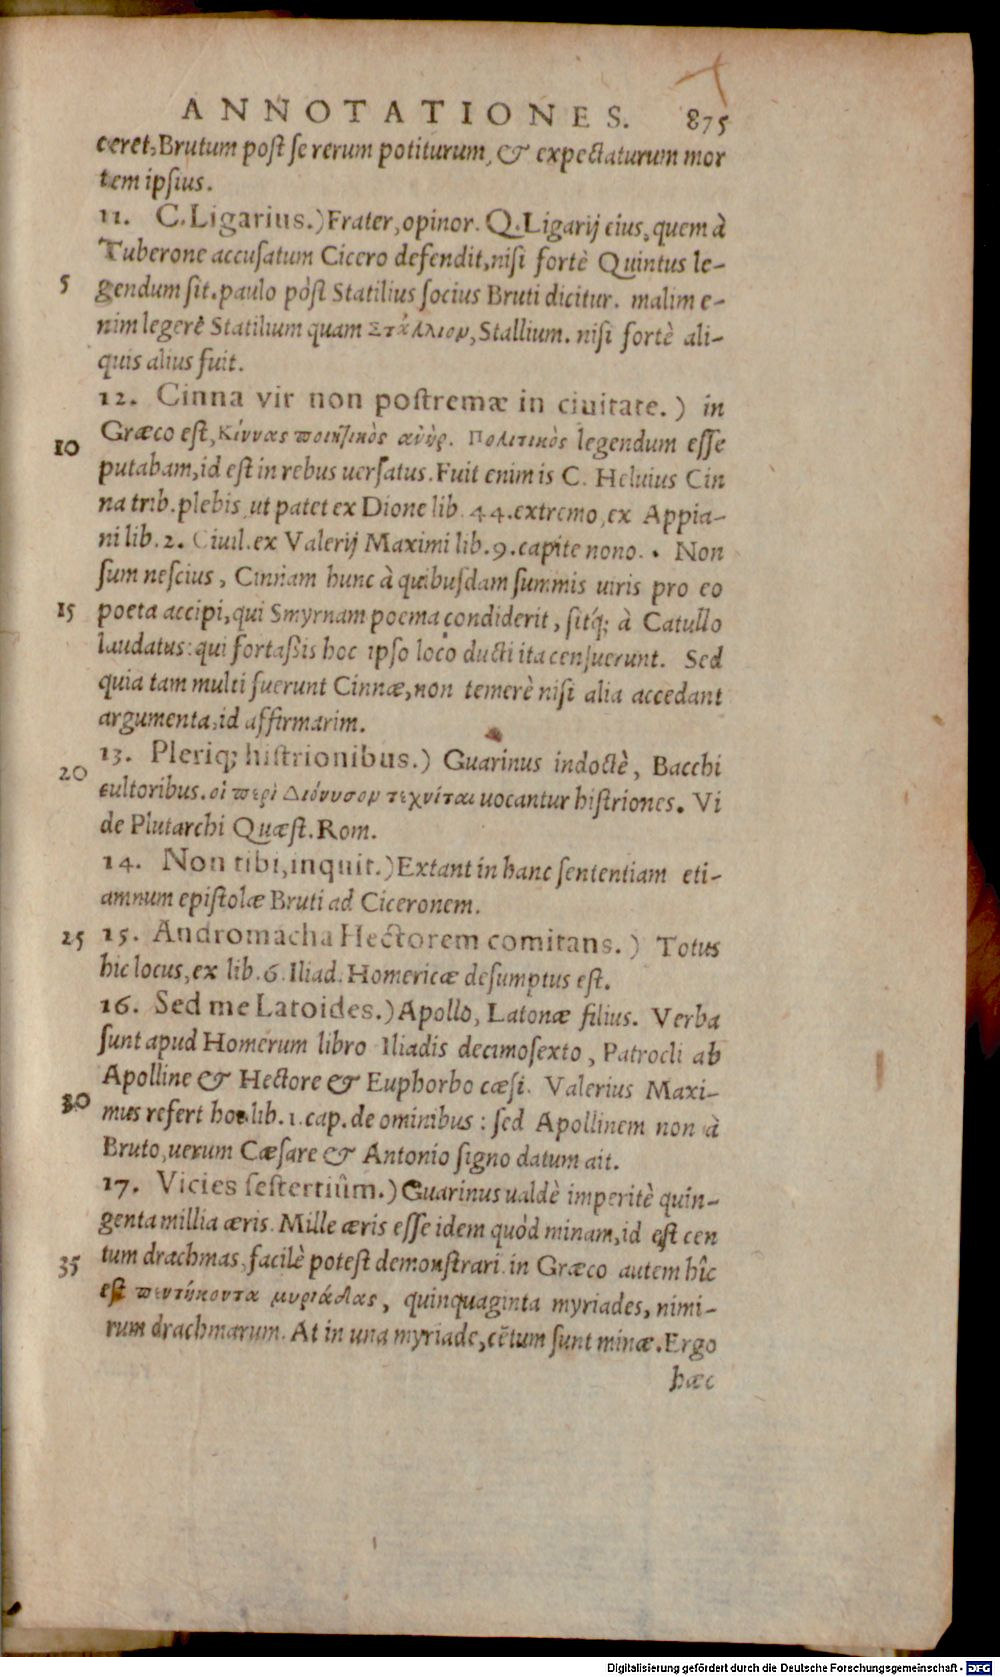 ANNOTATIONES. 875
ceret, Brutum post se rerum potiturum, & expectaturum mor
tem ipsius.
11. C. Ligarius.) Frater, opinor. Q. Ligarij eius, quem à
Tuberone accusatum Cicero defendit, nisi fortè Quintus le-
5 gendum sit. paulo pòst Statilius socius Bruti dicitur. malim e-
nim legere Statilium quam Στάλλιον, Stallium. nisi fortè ali-
quis alius fuit.
12. Cinna vir non postremæ in ciuitate.) in
10 Græco est, Κίννας ποιητικὸς ἀνὴρ. Πολιτικὸς legendum esse
putabam, id est in rebus uersatus. Fuit enim is C. Heluius Cin
na trib. plebis, ut patet ex Dione lib. 44. extremo, ex Appia-
ni lib. 2. Ciuil. ex Valerij Maximi lib. 9. capite nono. . Non
sum nescius, Cinnam hunc à quibusdam summis uiris pro eo
15 poeta accipi, qui Smyrnam poema condiderit, sitq́; à Catullo
laudatus: qui fortaßis hoc ipso loco ducti ita censuerunt. Sed
quia tam multi fuerunt Cinnæ, non temerè nisi alia accedant
argumenta, id affirmarim.
13. Pleriq; histrionibus.) Guarinus indoctè, Bacchi
20 cultoribus. οἱ περὶ Διόνυσον τεχνίται uocantur histriones. Vi
de Plutarchi Quæst. Rom.
14. Non tibi, inquit.) Extant in hanc sententiam eti-
amnum epistolæ Bruti ad Ciceronem.
25 15. Andromacha Hectorem comitans.) Totus
hic locus, ex lib. 6. Iliad. Homericæ desumptus est.
16. Sed me Latoides.) Apollo, Latonæ filius. Verba
sunt apud Homerum libro Iliadis decimosexto, Patrocli ab
Apolline & Hectore & Euphorbo cæsi. Valerius Maxi-
30 mus refert hoc lib. 1. cap. de ominibus: sed Apollinem non à
Bruto, uerum Cæsare & Antonio signo datum ait.
17. Vicies sestertiûm.) Guarinus ualdè imperitè quin-
genta millia æris. Mille æris esse idem quòd minam, id est cen
35 tum drachmas, facilè potest demonstrari. in Græco autem hîc
est πεντήκοντα μυριάδας, quinquaginta myriades, nimi-
rum drachmarum. At in una myriade, cẽtum sunt minæ. Ergo
hæc
Digitalisierung gefördert durch die Deutsche Forschungsgemeinschaft - DFG